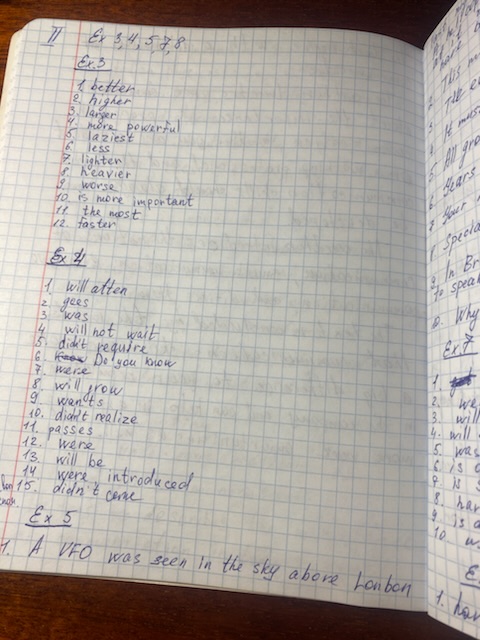 II Ex 3, 4, 5, 7, 8
Ex. 3
1. better
2. higher
3. larger
4. more powerful
5. laziest
6. less
7. lighter
8. heavier
9. worse
10. is more important
11. the most
12. faster
Ex 4
1. will atten
2. goes
3. was
4. will not wait
5. didn't require
6. Do you know
7. were
8. will grow
9. wants
10. didn't realize
11. passes
12. were
13. will be
14 were introduced
15. didn't come
Ex 5
1. A VFO was seen in the sky above Lonbon
2. This m
3. The e
4. It mus
5. All gro
6. Years
7. Your
8. Specia
9. In Br
10. speak
10. Why
Ex. 7
1.
2. we
3. will
4. will
5. was
6. is
7. is
8. har
9. is a
10. w
E
1. har